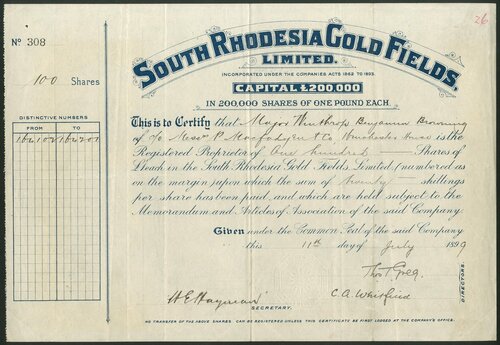 26
Nº 308
100 Shares
DISTINCTIVE NUMBERS
FROM TO
162102 162201
SOUTH RHODESIA GOLD FIELDS,
LIMITED.
INCORPORATED UNDER THE COMPANIES ACTS 1862 TO 1893.
CAPITAL £200,000
IN 200,000 SHARES OF ONE POUND EACH.
This is to Certify that Major Winthrop Benjamin Browning
of c/o Messrs P. & Co Winchester House is the
Registered Proprietor of One hundred Shares of
£1 each in the South Rhodesia Gold Fields, Limited, (numbered as
on the margin) upon which the sum of twenty shillings
per share has been paid, and which are held subject to the
Memorandum and Articles of Association of the said Company.
Given under the Common Seal of the said Company
this 11th day of July 1899
DIRECTORS.
SECRETARY.
NO TRANSFER OF THE ABOVE SHARES CAN BE REGISTERED UNLESS THIS CERTIFICATE BE FIRST LODGED AT THE COMPANY'S OFFICES.